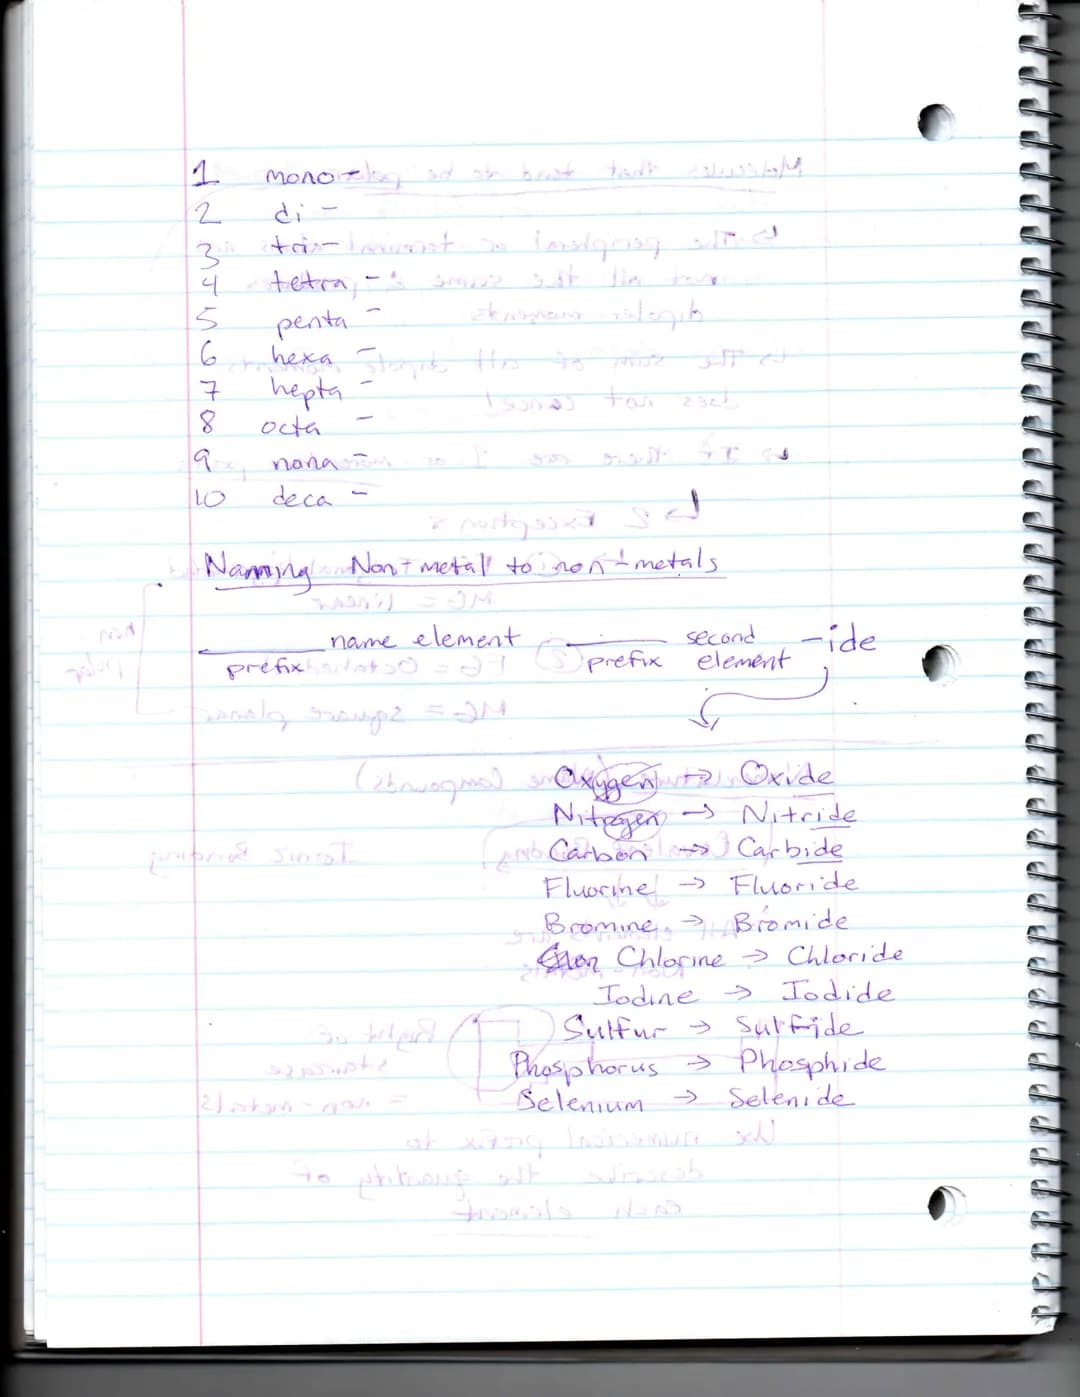 1 mono-
2 di -
3 tri-
4 tetra -
5 penta -
6 hexa -
7 hepta -
8 octa -
9 nona -
10 deca -
Naming Non-metal to non-metals
name element second -ide
prefix prefix element
Oxygen → Oxide
Nitrogen → Nitride
Carbon → Carbide
Fluorine → Fluoride
Bromine → Bromide
Chlorine → Chloride
Iodine → Iodide
Sulfur → Sulfide
Phosphorus → Phosphide
Selenium → Selenide